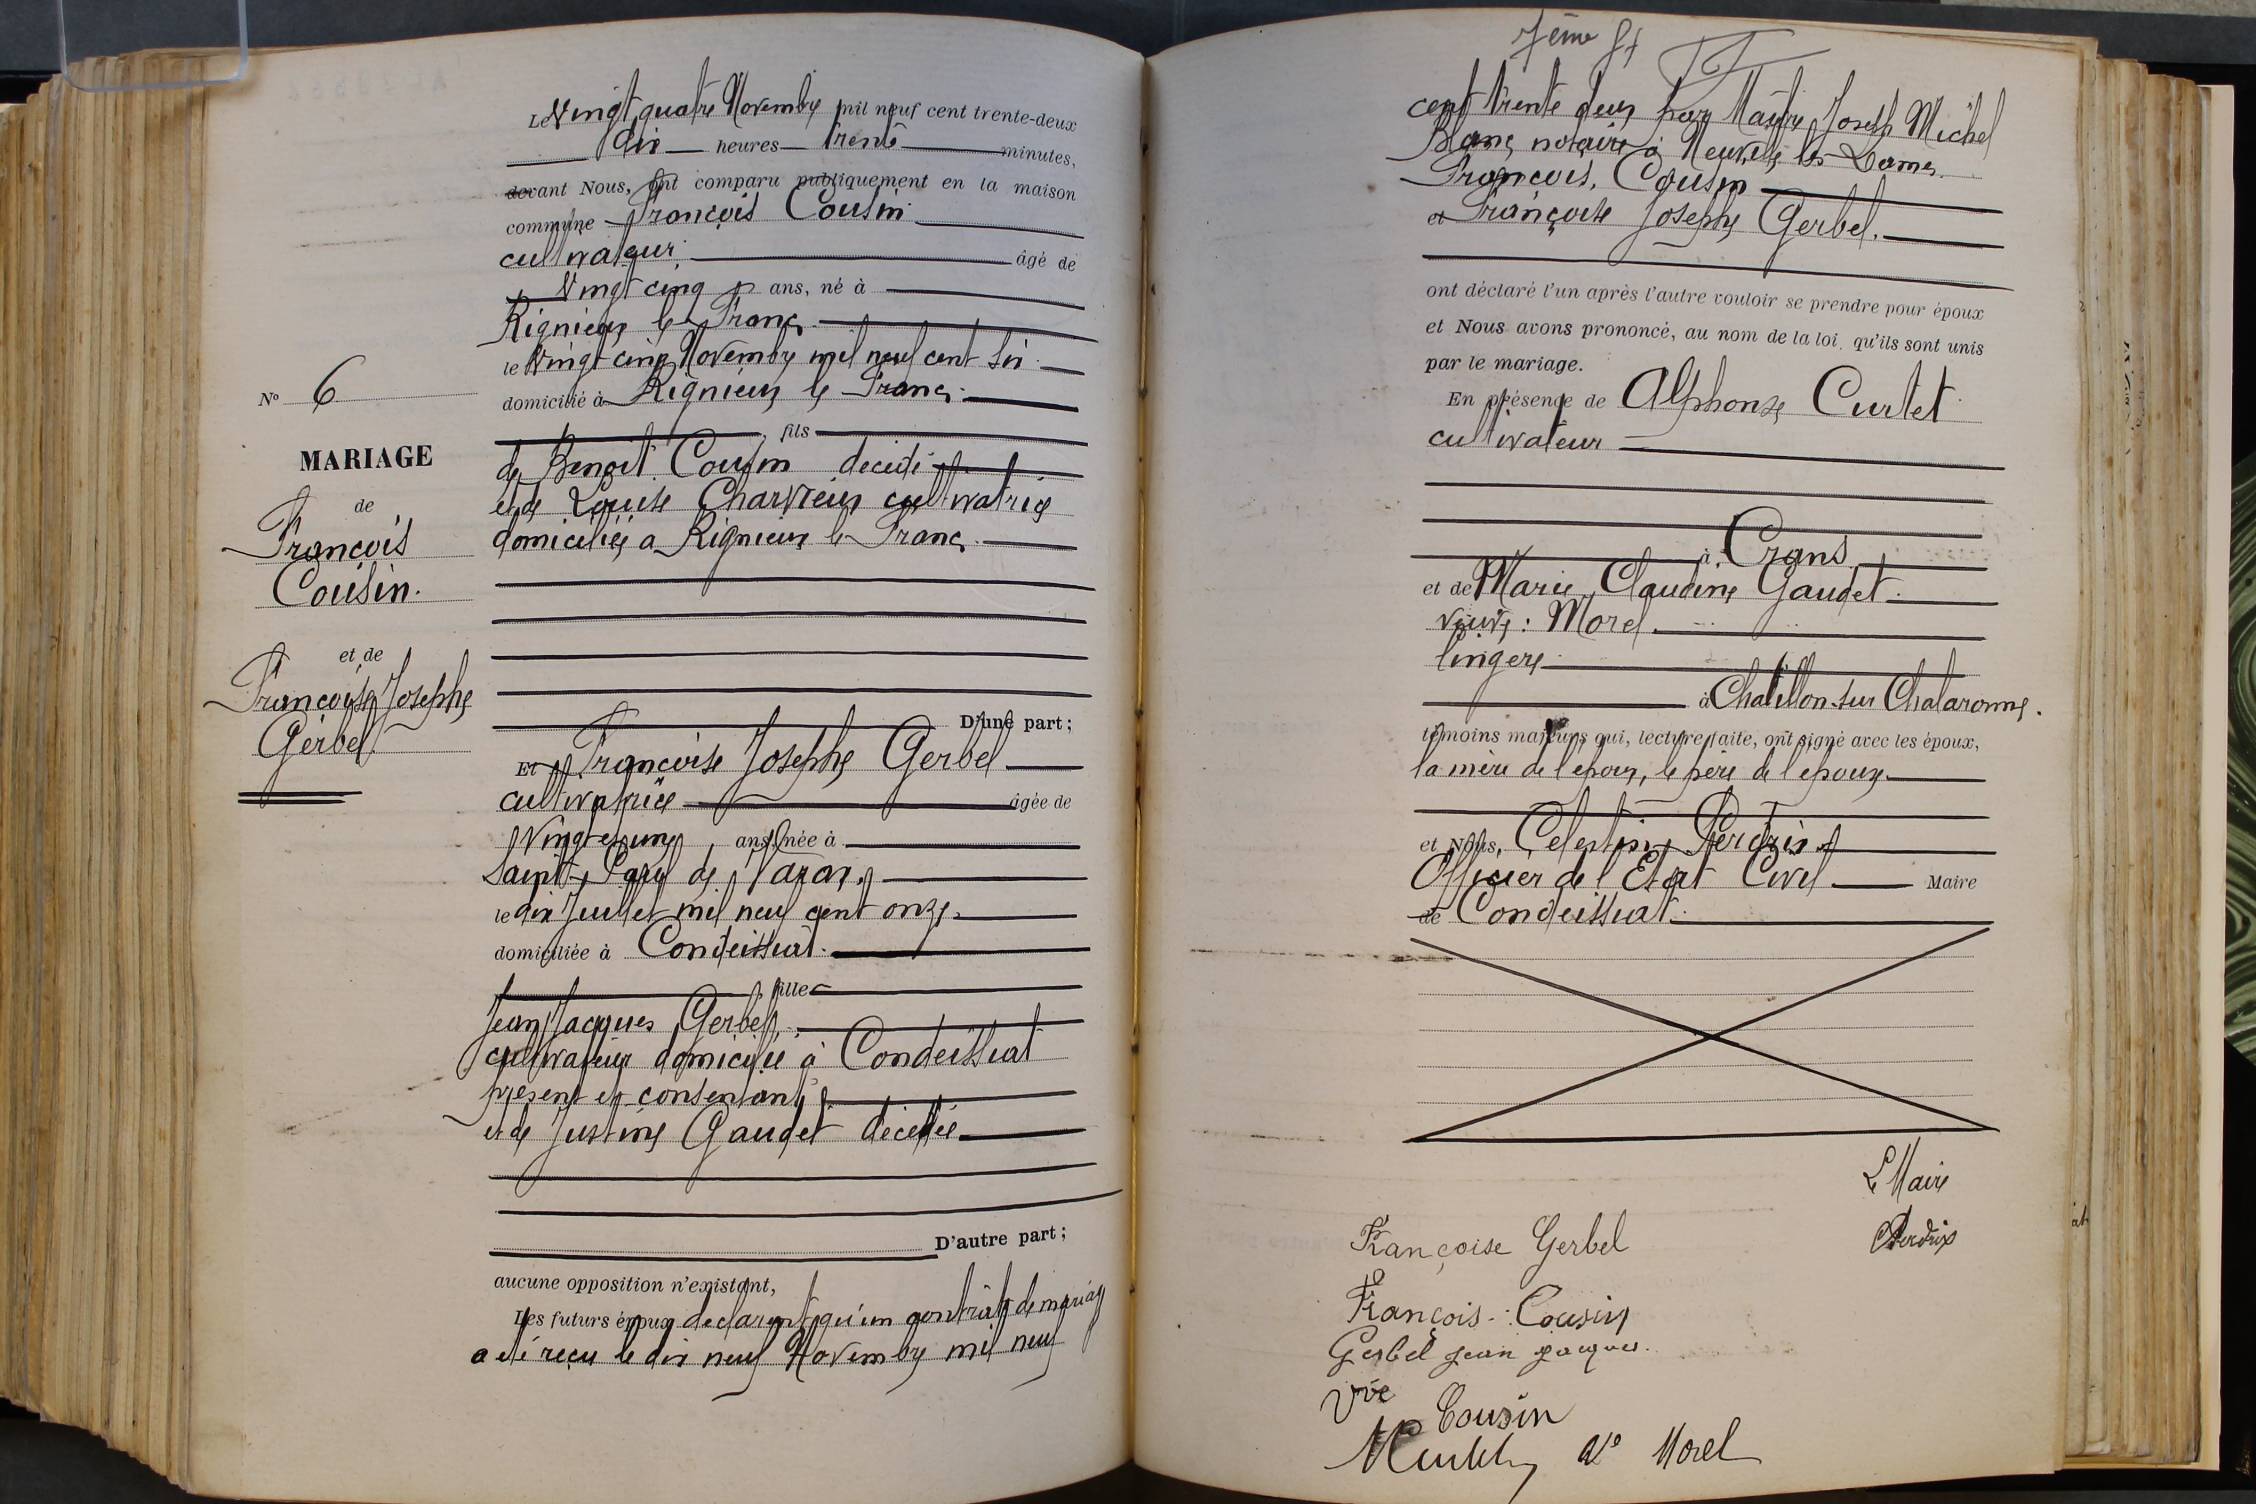 Le Vingt quatre Novembre mil neuf cent trente-deux
dix heures trente minutes,
devant Nous, ont comparu publiquement en la maison
commune François Cousin
cultivateur âgé de
Vingt cinq ans, né à
Rignieux le Franc
le Vingt cinq Novembre mil neuf cent six
domicilié à Rignieux le Franc
fils
de Benoît Cousin décédé
et de Louise Charvieux cultivatrice
domiciliée à Rignieux le Franc
D'une part;
Et Françoise Josephe Gerbel
cultivatrice âgée de
Vingt et une ans, née à
Saint Paul de Varax
le dix Juillet mil neuf cent onze
domiciliée à Condeissiat
fille
Jean Jacques Gerbel
cultivateur domicilié à Condeissiat
présent et consentant
et de Justine Gaudet décédée
D'autre part;
aucune opposition n'existant,
Les futurs époux declarent qu'un contrat de mariage
a été reçu le dix neuf Novembre mil neuf
N° 6
MARIAGE
de
François
Cousin.
et de
Françoise Josephe
Gerbel
7ème
cent trente deux par Maître Joseph Michel
Blanc notaire à Neuville les Dames
François Cousin
et Françoise Josephe Gerbel.
ont déclaré l'un après l'autre vouloir se prendre pour époux
et Nous avons prononcé, au nom de la loi, qu'ils sont unis
par le mariage.
En présence de Alphonse Curtet
cultivateur
à Crans
et de Marie Claudine Gaudet
veuve : Morel
lingère
à Chatillon-sur Chalaronne.
témoins majeurs qui, lecture faite, ont signé avec les époux,
la mère de l'époux, le père de l'épouse
et Nous, Celestin Perdrix
Officier de l'Etat Civil Maire
de Condeissiat
Le Maire
Perdrix
Françoise Gerbel
François Cousin
Gerbel jean jacques
Vve Cousin
Vve Morel